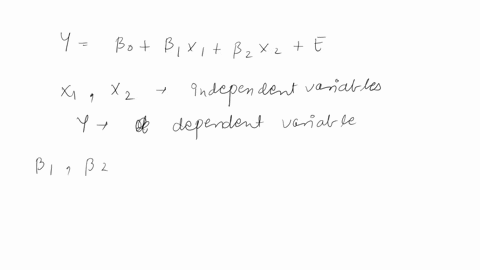 Y = β0 + β1 x1 + β2 x2 + E
x1 , x2 → independent variables
Y → dependent variable
β1 , β2